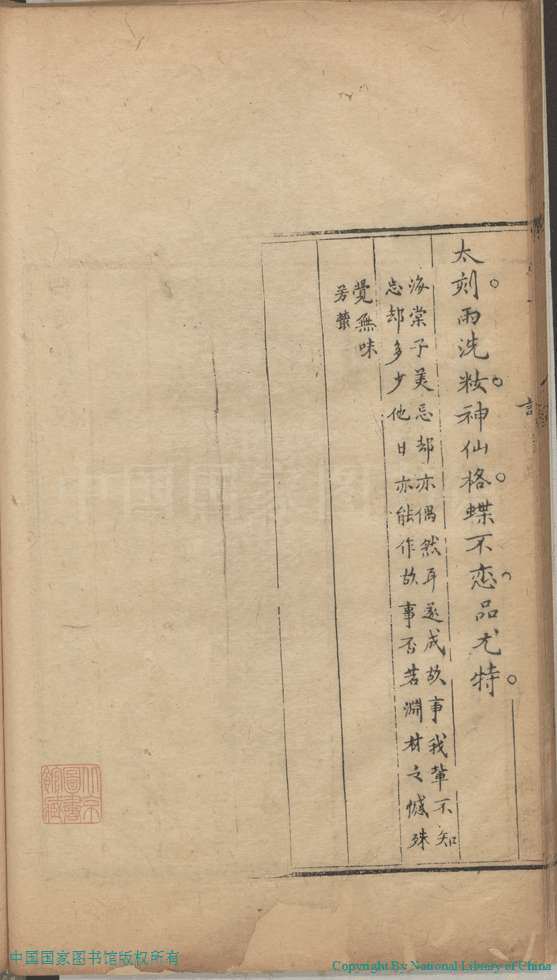 太刻雨洗妝神仙格蝶不恋品尤特
海棠子美忘却亦偶然耳遂成故事我輩不知
忘却多少他日亦能作故事否若淵材之憾殊
覺無味
芳叢
北京圖書館藏
中国国家图书馆版权所有
Copyright By National Library of China
中国国家图